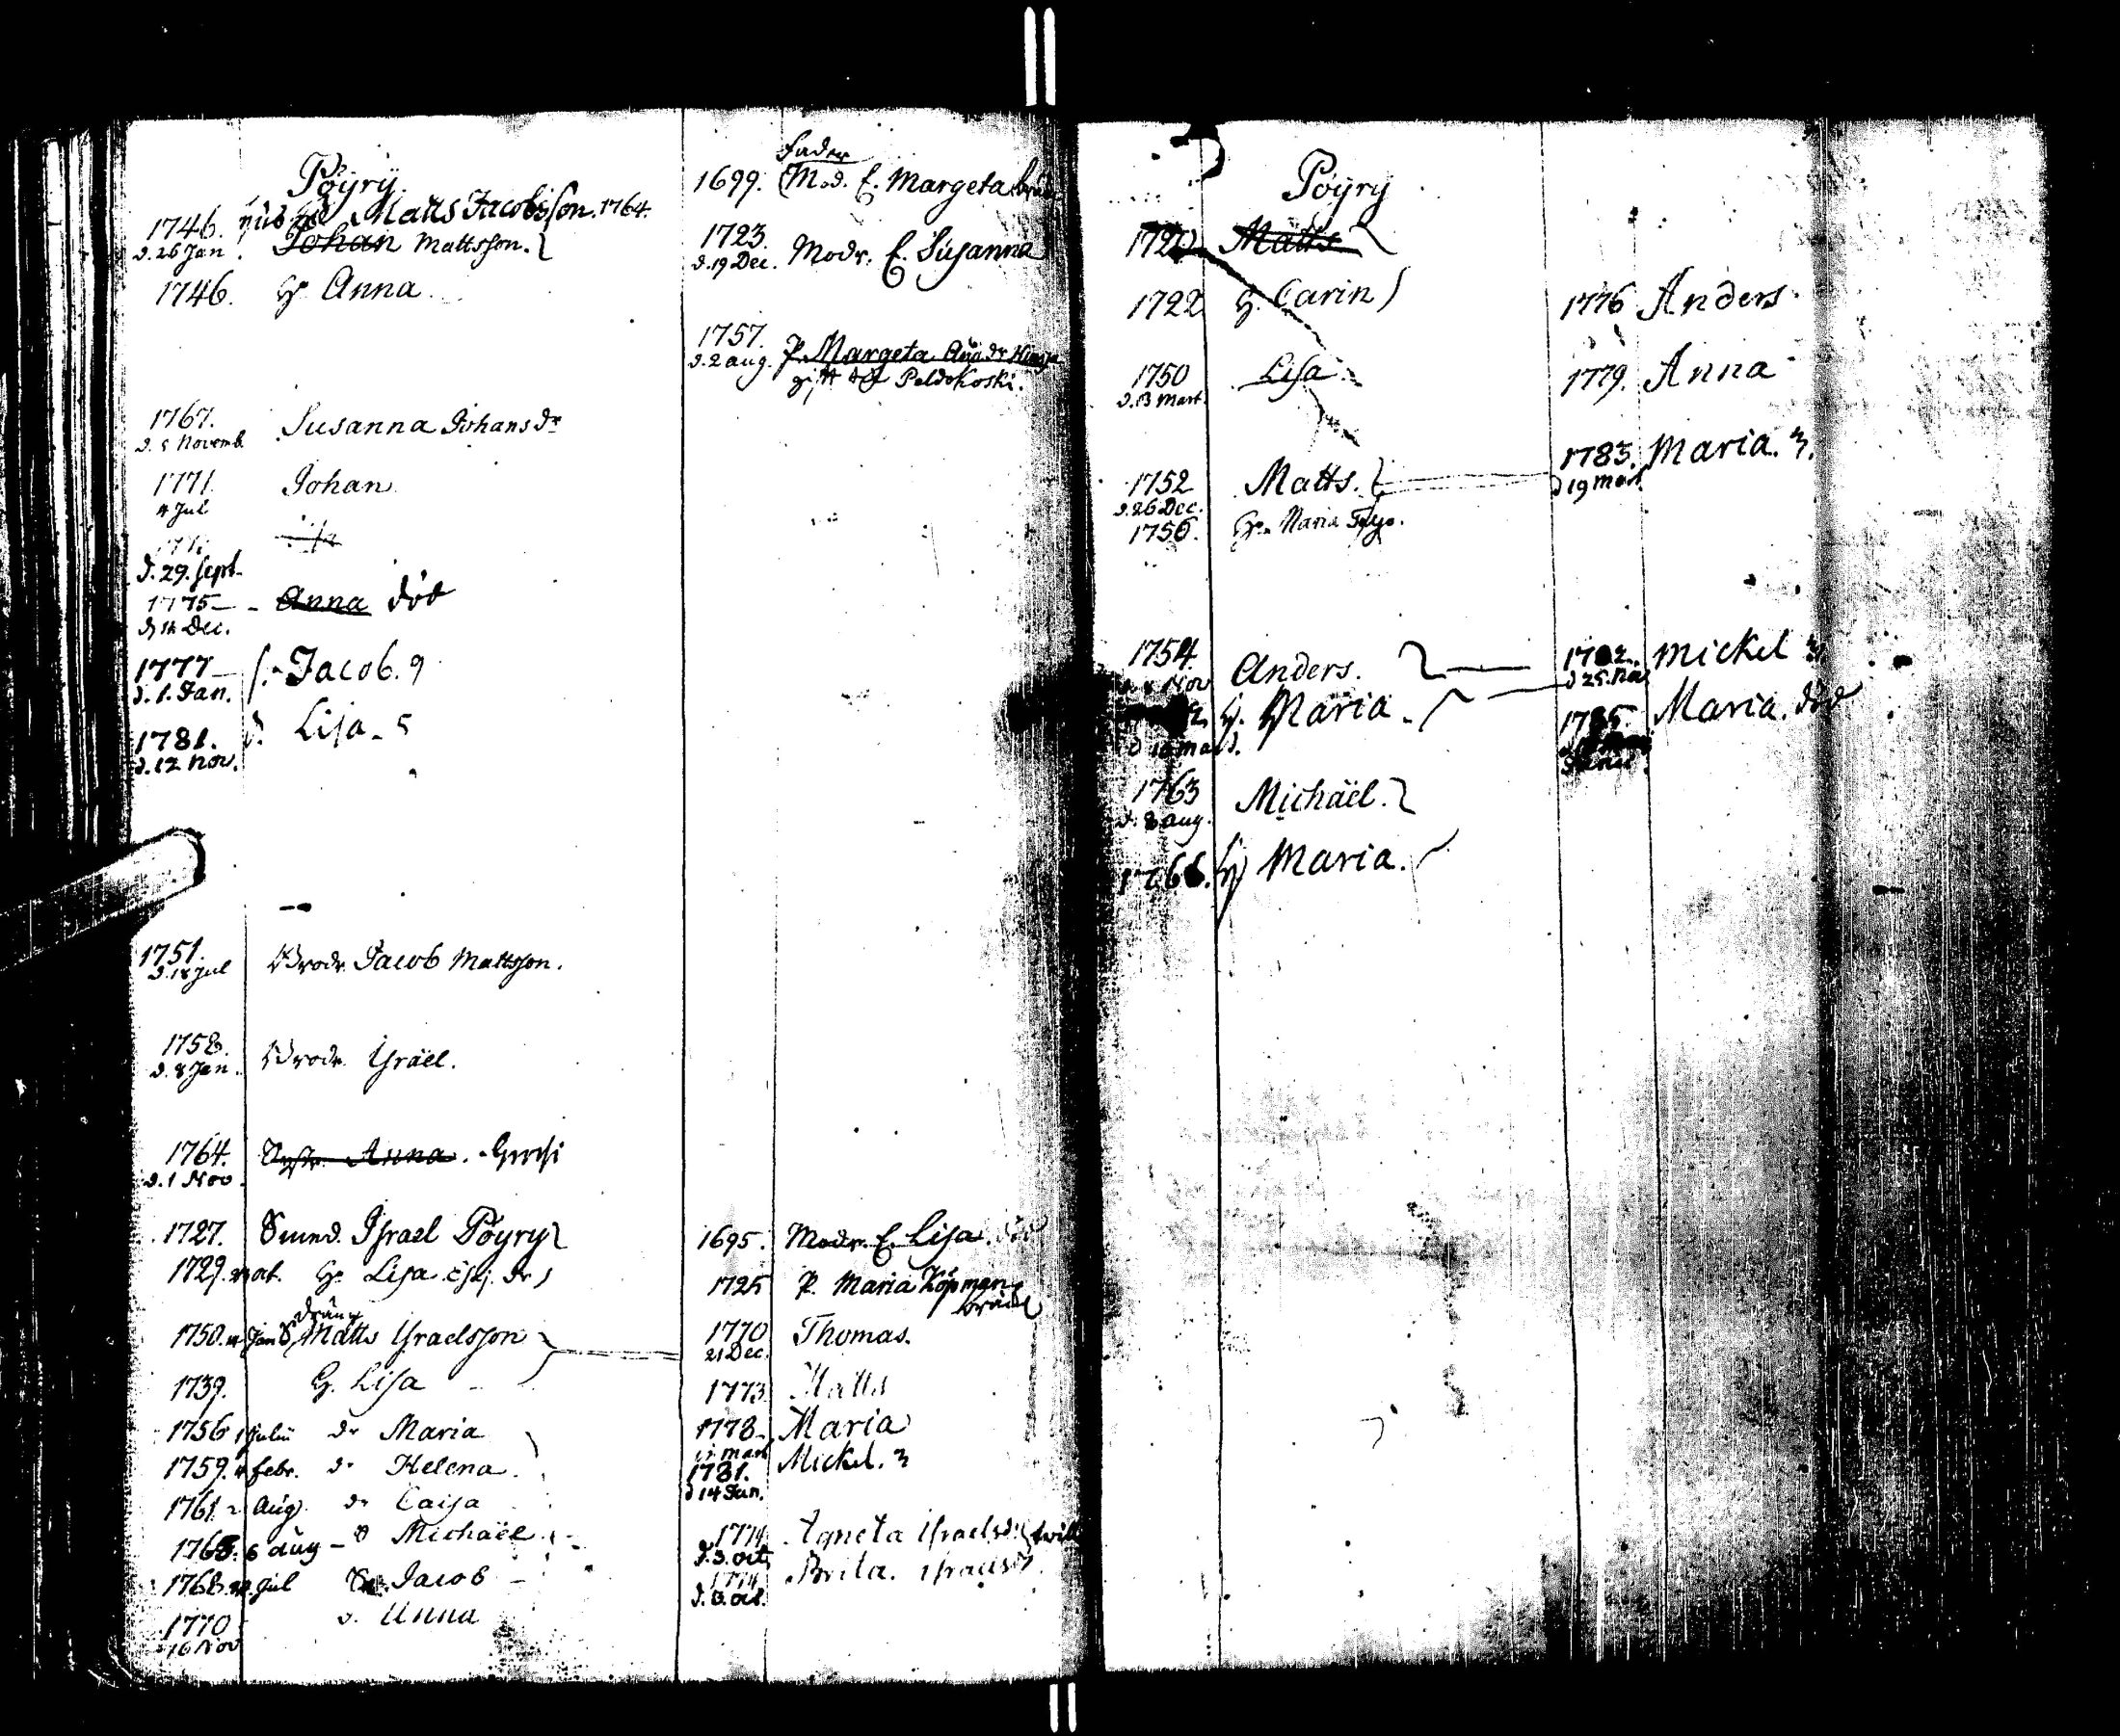 Pöyry.
Matts Jacobsson. 1764.
1746. Johan Mattsson.
d. 26 Jan
1746. H. Anna
1767. Susanna Johans dr
d. 5 Novemb.
1771. Johan
4 Jul
d. 29. Sept.
1775 - Anna död
Dec.
1777 - Jacob. 9
d. 1. Jan.
1781. d. Lisa - 5
d. 12 Nov.
1751. Brodr. Jacob Mattsson.
d. 18 Jul
1758. Brodr. Israël.
d. 8 Jan.
1764. Systr. Anna.
d. 1 Nov.
1727. Israel Pöyry
1729. H. Lisa
dräng
1750. Jan Matts Israelsson
1739. H. Lisa
1756 1 Julii dr Maria
1759. febr. dr Helena
1761. Aug dr Caisa
6 Aug - Michäel
1768. Jul Jacob
1770 d. Anna
16 Nov
Fader
1699. Mod. E. Margeta
1723. Modr. E. Susanna
d. 19 Dec.
1757. P. Margeta
d. 2 Aug. gift Peldokoski.
1695. Modr. E. Lisa. död
1725 P. Maria Köpman
1770 Thomas.
21 Dec.
1773 Matts
1778 - Maria
Mart
1781. Mickel. 3
d 14 Jan.
1774 Agneta Israelsdr
d. 3. Oct.
1774 Brita. Israelsdr
d. 3. Oct.
Pöyry
1720 Matts
1722 H. Carin
1750 Lisa
d. 13 Mart.
1752 Matts.
d. 26 Dec.
1756. H. Maria
1754. Anders.
Nov
H. Maria.
1763 Michäel.
d. 8 Aug.
H Maria.
1776 Anders
1779. Anna
1783. Maria. 3.
d 19 Mart
Mickel 3
d 25.
1785. Maria. död